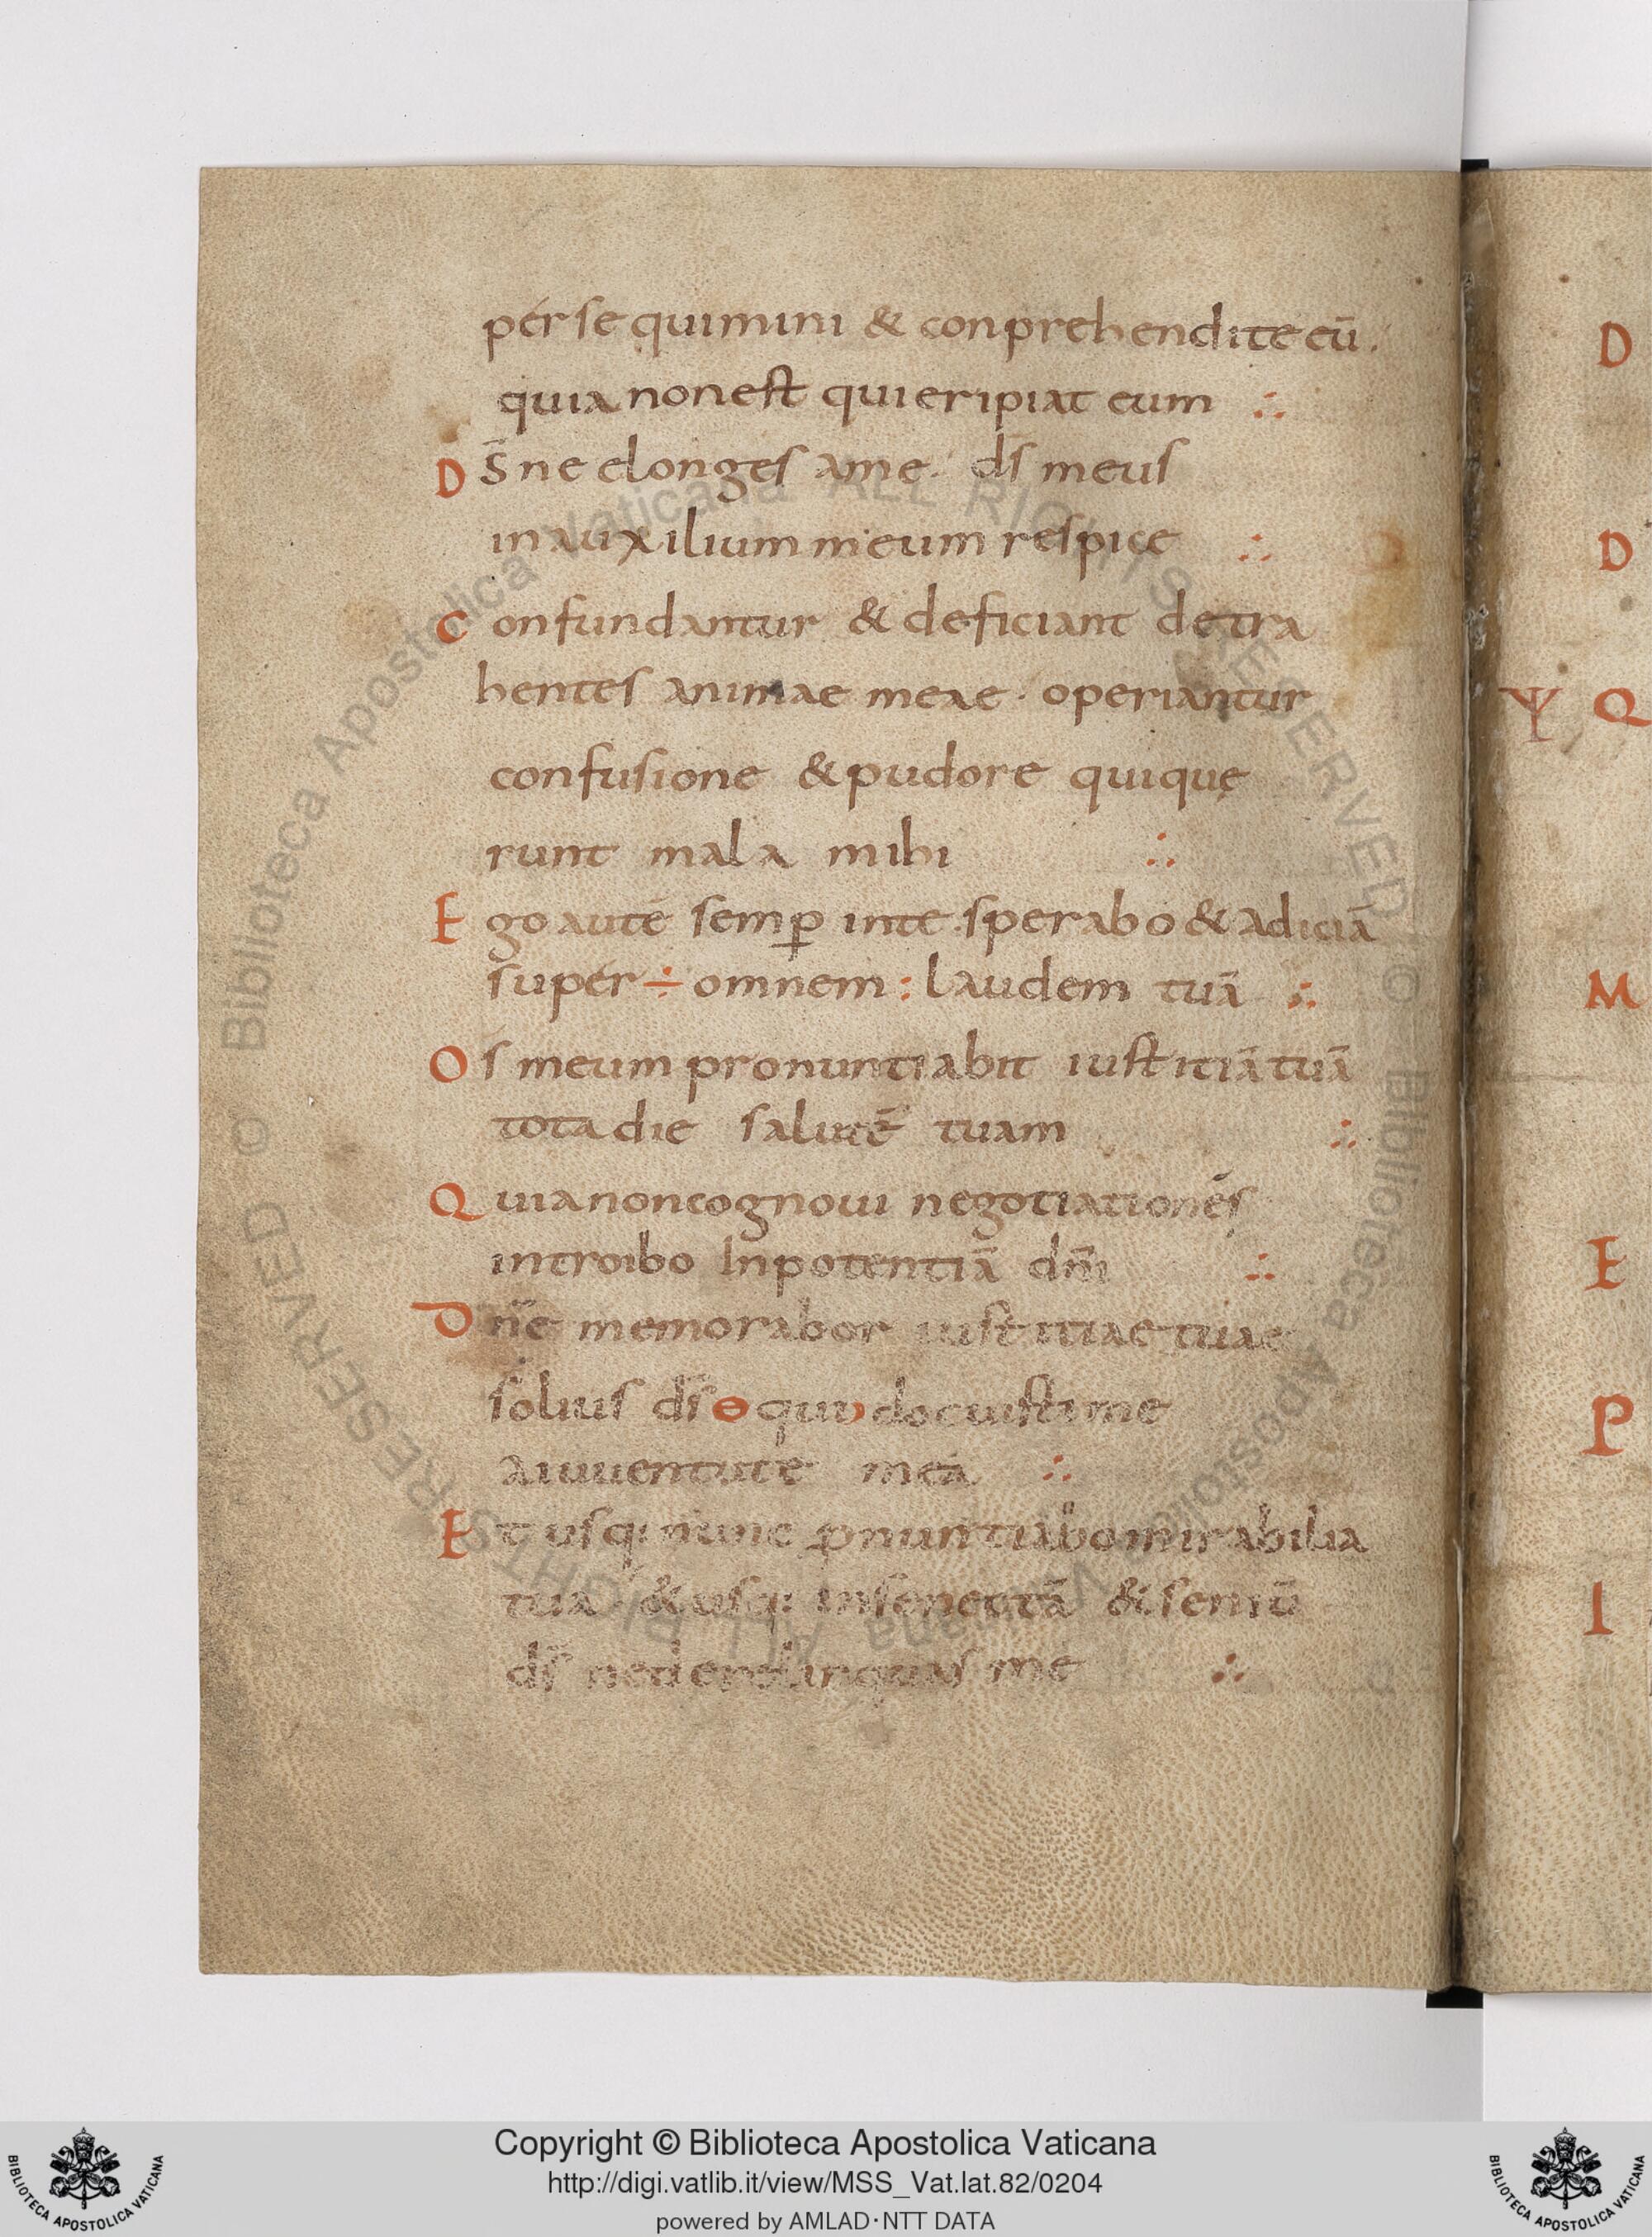 persequimini & conprehendite eū.
quia non est qui eripiat eum ∴
D s̄ ne elonges a me. ds̄ meus
in auxilium meum respice ∴
C onfundantur & deficiant detra
hentes animae meae · operiantur
confusione & pudore qui quę
runt mala mihi ∴
E go autē semp̱ in te sperabo & adiciā
super ÷ omnem : laudem tuā ∴
O s meum pronuntiabit iustitiā tuā
tota die salutē tuam ∴
Q uia non cognovi negotiationes
introibo In potentiā dn̄i ∴
D n̄e memorabor iustitiae tuae
solius ds̄ qui docuisti me
a iuventute mea ∴
E t usq; nunc ꝓnuntiabo mirabilia
tua & usq; in senectā & seniū
ds̄ ne derelinquas me ∴
D
D
Ψ Q
M
E
P
I
Biblioteca Apostolica Vaticana ALL RIGHTS RESERVED ©
Biblioteca Apostolica Vaticana ALL RIGHTS RESERVED ©
Copyright © Biblioteca Apostolica Vaticana
http://digi.vatlib.it/view/MSS_Vat.lat.82/0204
powered by AMLAD·NTT DATA
BIBLIOTECA APOSTOLICA VATICANA
BIBLIOTECA APOSTOLICA VATICANA